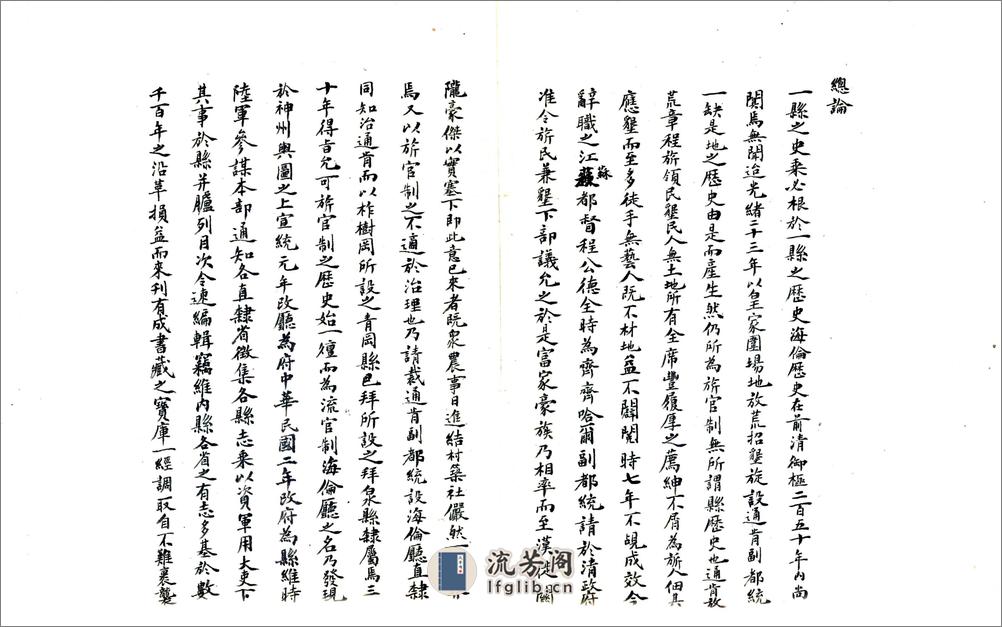 總論
一縣之史乘必根於一縣之歷史海倫歷史在前清御極二百五十年內尚
閴焉無聞迨光緒二十三年以皇家圍場地放荒招墾旋設通肯副都統
一缺是地之歷史由是而產生然仍所為旂官制無所謂縣歷史也通肯放
荒章程旂領民墾民人無土地所有全席豐履厚之薦紳不屑為旂人佃其
應墾而至多徒手無藝人既不材地益不闢閱時七年不覩成效今
辭職之江蘇都督程公德全時為齊齊哈爾副都統請於清政府
准令旂民兼墾下部議允之於是富家豪族乃相率而至漢徙關
隴豪傑以實塞下即此意已來者既衆農事日進結村築社儼然一
焉又以旂官制之不適於治理也乃請裁通肯副都統設海倫廳直隸
同知治通肯而以柞樹岡所設之青岡縣巴拜所設之拜泉縣隸屬焉三
十年得旨允可旂官制之歷史始一變而為流官制海倫廳之名乃發現
於神州輿圖之上宣統元年改廳為府中華民國二年改府為縣維時
陸軍參謀本部通知各直隸省徵集各縣志乘以資軍用大吏下
其事於縣并臚列目次令速編輯竊維內縣各省之有志多基於數
千百年之沿革損益而來刊有成書藏之寶庫一經調取自不難裹襲
流芳阁
lfglib.cn